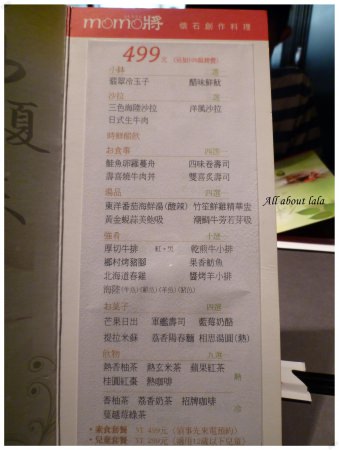 momo將 懷石創作料理
499元 (另加10%服務費)
小缽 二選一
翡翠冷玉子 醋味鮮魷
沙拉 三選一
三色海陸沙拉 洋風沙拉
日式生牛肉
時鮮醋飲
お食事 四選一
鮭魚卵雞蔓舟 四味卷壽司
壽喜燒牛肉丼 雙喜炙壽司
湯品 四選一
東洋番茄海鮮湯(酸辣) 竹笙鮮雞精華盅
黃金蜆蒜美鮑吸 潮鯛牛蒡若芽吸
強肴 十選一
厚切牛排 乾煎牛小排
鄉村烤豬腳 果香魴魚
北海道春雞 醬烤羊小排
海陸
お菓子 四選一
芒果日出 軍艦壽司 藍莓奶酪
提拉米蘇 荔香陽春麵 相思湯圓(熱)
飲物 九選一
熱香柚茶 熱玄米茶 蘋果紅茶
桂圓紅棗 熱咖啡 熱
香柚茶 荔香奶茶 招牌咖啡
蔓越莓綠茶 冷
•素食套餐 NT 499元 (須事先來電預約)
•兒童套餐 NT 280元 (適用12歲以下兒童)
All about lala